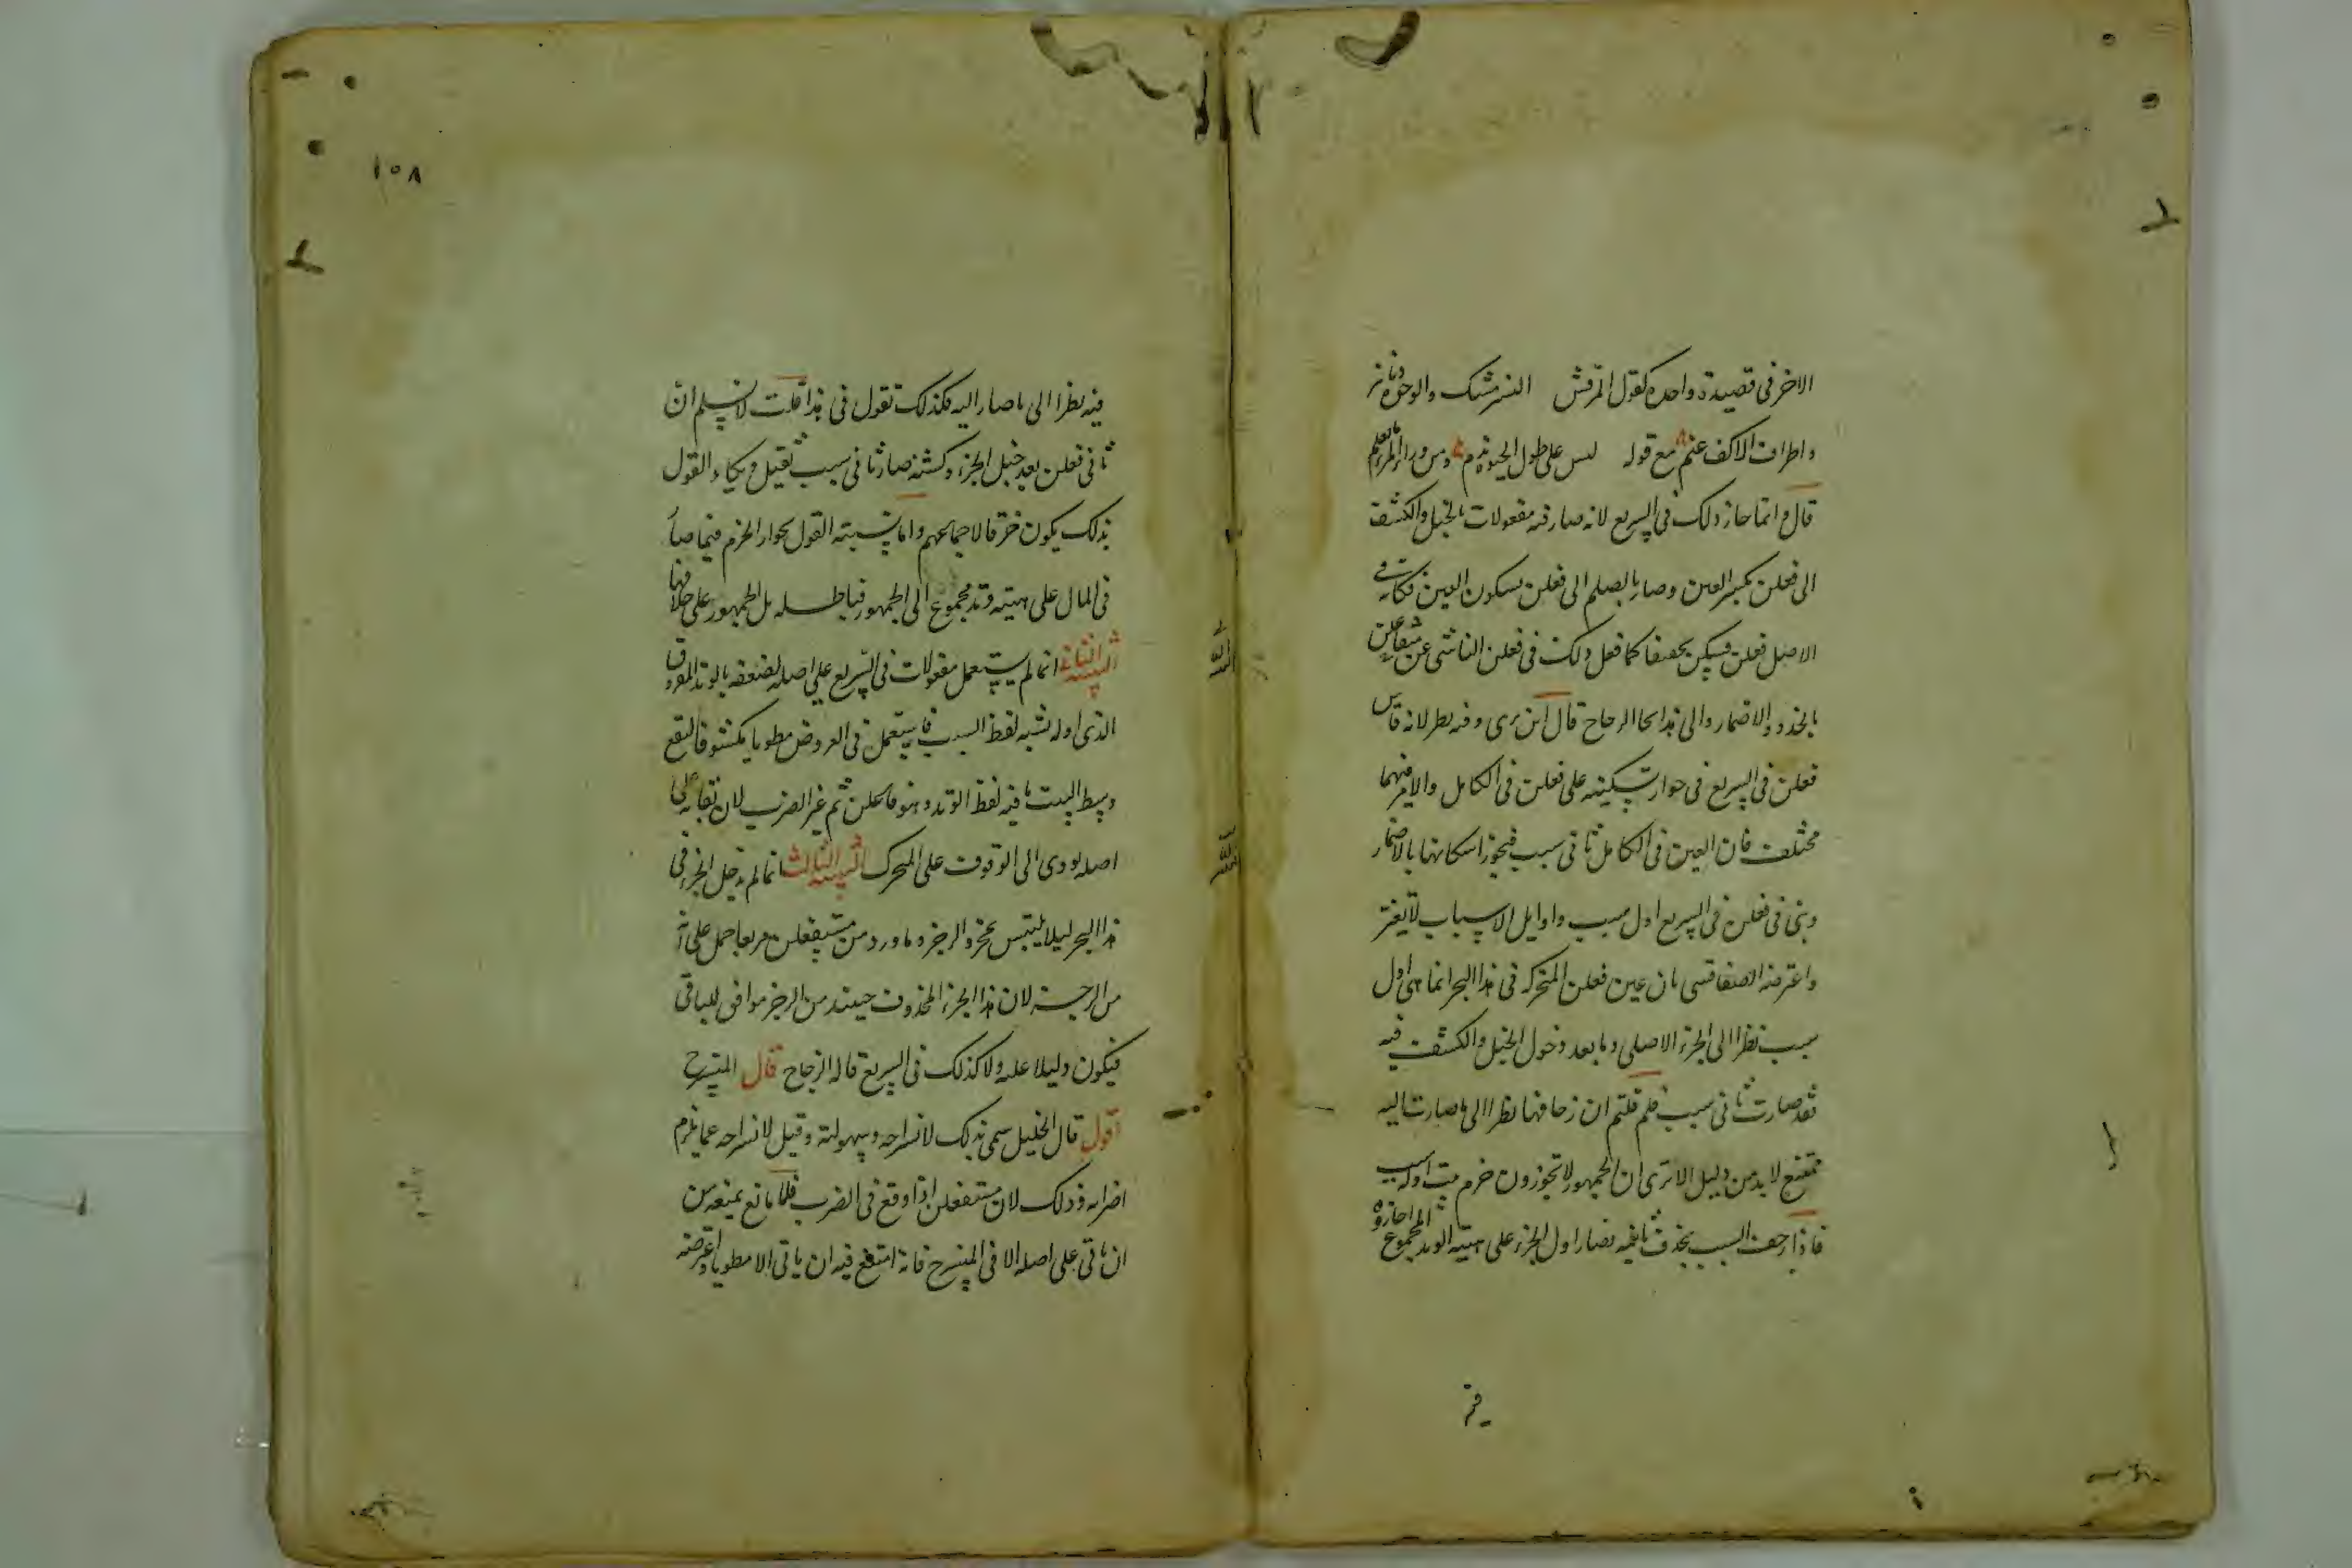 الاخر فى قصيدة واحدة كقول المرقش النشر مسك والوجوه دنانير
واطراف الاكف عنم مع قوله ليس على طول الحيوة ندم ومن وراء المرء ما يعلم
قال وانما جاز ذلك فى السريع لانه صار فيه مفعولات بالخبل والكشف
الى فعلن بكسر العين وصار بالصلم الى فعلن بسكون العين فكانه فى
الاصل فعلن فسكن تخفيفا كما فعل ذلك فى فعلن الناشى عن متفاعلن
بالحذذ والاضمار والى هذا نحا الزجاج قال ابن برى وفيه نظر لانه قاس
فعلن فى السريع فى جواز تسكينه على فعلن فى الكامل والامر فيهما
مختلف فان العين فى الكامل ثانى سبب فيجوز اسكانها بالاضمار
وهى فى فعلن فى السريع اول سبب واوايل الاسباب لا يغير
واعترضه الصفاقسى بان عين فعلن المتحركة فى هذا البحر انما هى اول
سبب نظرا الى الجزء الاصلى وما بعد دخول الخبل والكشف فيه
فقد صارت ثانى سبب فلم قلتم ان زحافها نظرا الى ما صارت اليه
ممتنع لابد من دليل الا ترى ان الجمهور لا يجوزون خرم بيت اوله سبب
فاذا زحف السبب بحذف ثانيه فصار اول الجزء على هيئة الوتد المجموع اجازوه
فيه نظرا الى ما صار اليه فكذلك نقول فى هذا قلت لا نسلم ان
ثانى فعلن بعد خبل الجزء وكشفه صار ثانى سبب ثقيل ويكاد القول
بذلك يكون خرقا لاجماعهم واما نسبته القول بجواز الخرم فيما صار
فى المال على هيئة وتد مجموع الى الجمهور فباطله بل الجمهور على خلافها
التنبيه الثانى انما لم يستعمل مفعولات فى السريع على اصله لضعفه بالوتد المفروق
الذى اوله يشبه لفظ السبب فاستعمل فى العروض مطويا مكشوفا ليقع
وسط البيت ما فيه لفظ الوتد وهو فاعلن ثم غير الضرب لان بقاءه على
اصله يودى الى الوقوف على المتحرك التنبيه الثالث انما لم يدخل الجزء فى
هذا البحر ليلا يلتبس بمجزو الرجز وما ورد من مستفعلن مربعا حمل على انه
من الرجز لان هذا الجزء المحذوف حينئذ من الرجز موافق للباقى
فيكون دليلا عليه ولا كذلك فى السريع قاله الزجاج قال المنسرح
اقول قال الخليل سمى بذلك لانسراحه وسهولته وقيل لانسراحه عما يلزم
اضرابه وذلك لان مستفعلن اذا وقع فى الضرب فلا مانع يمنعه من
ان ياتى على اصله الا فى المنسرح فانه امتنع فيه ان ياتى الا مطويا واعترضه
فيه
١٥٨